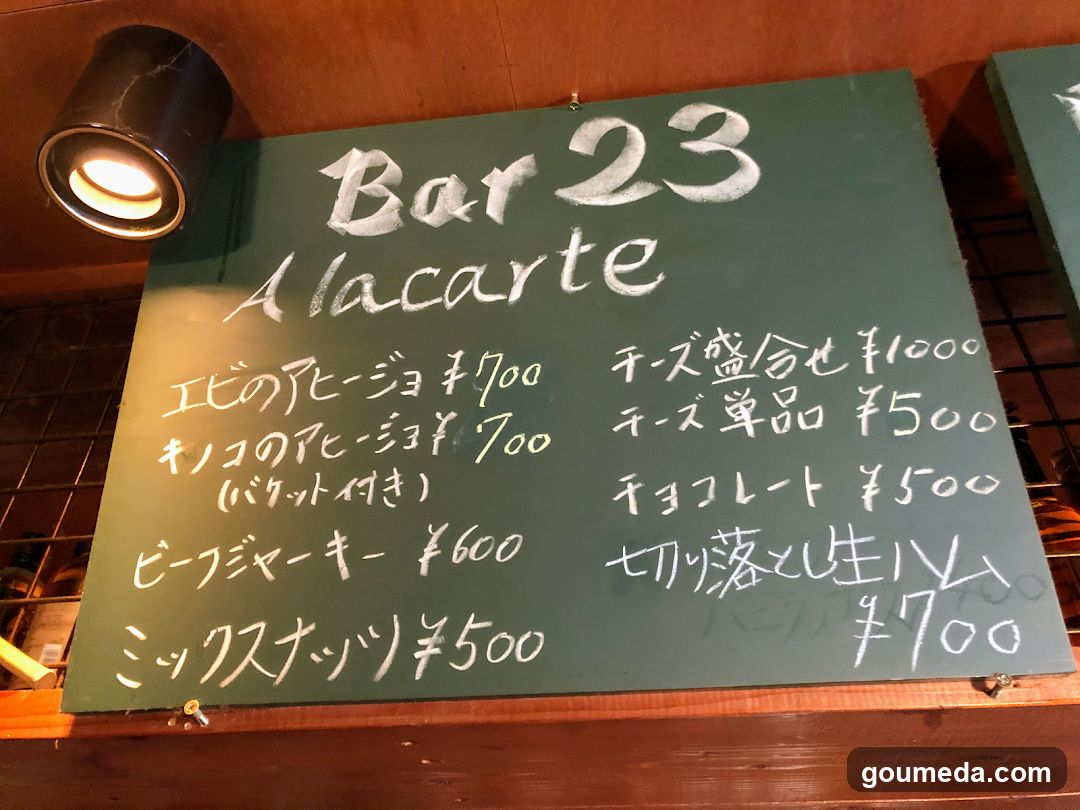 Bar 23
A lacarte
エビのアヒージョ ¥700
キノコのアヒージョ ¥700
(バケット付き)
ビーフジャーキー ¥600
ミックスナッツ ¥500
チーズ盛合せ ¥1000
チーズ単品 ¥500
チョコレート ¥500
切り落とし生ハム
¥700
goumeda.com